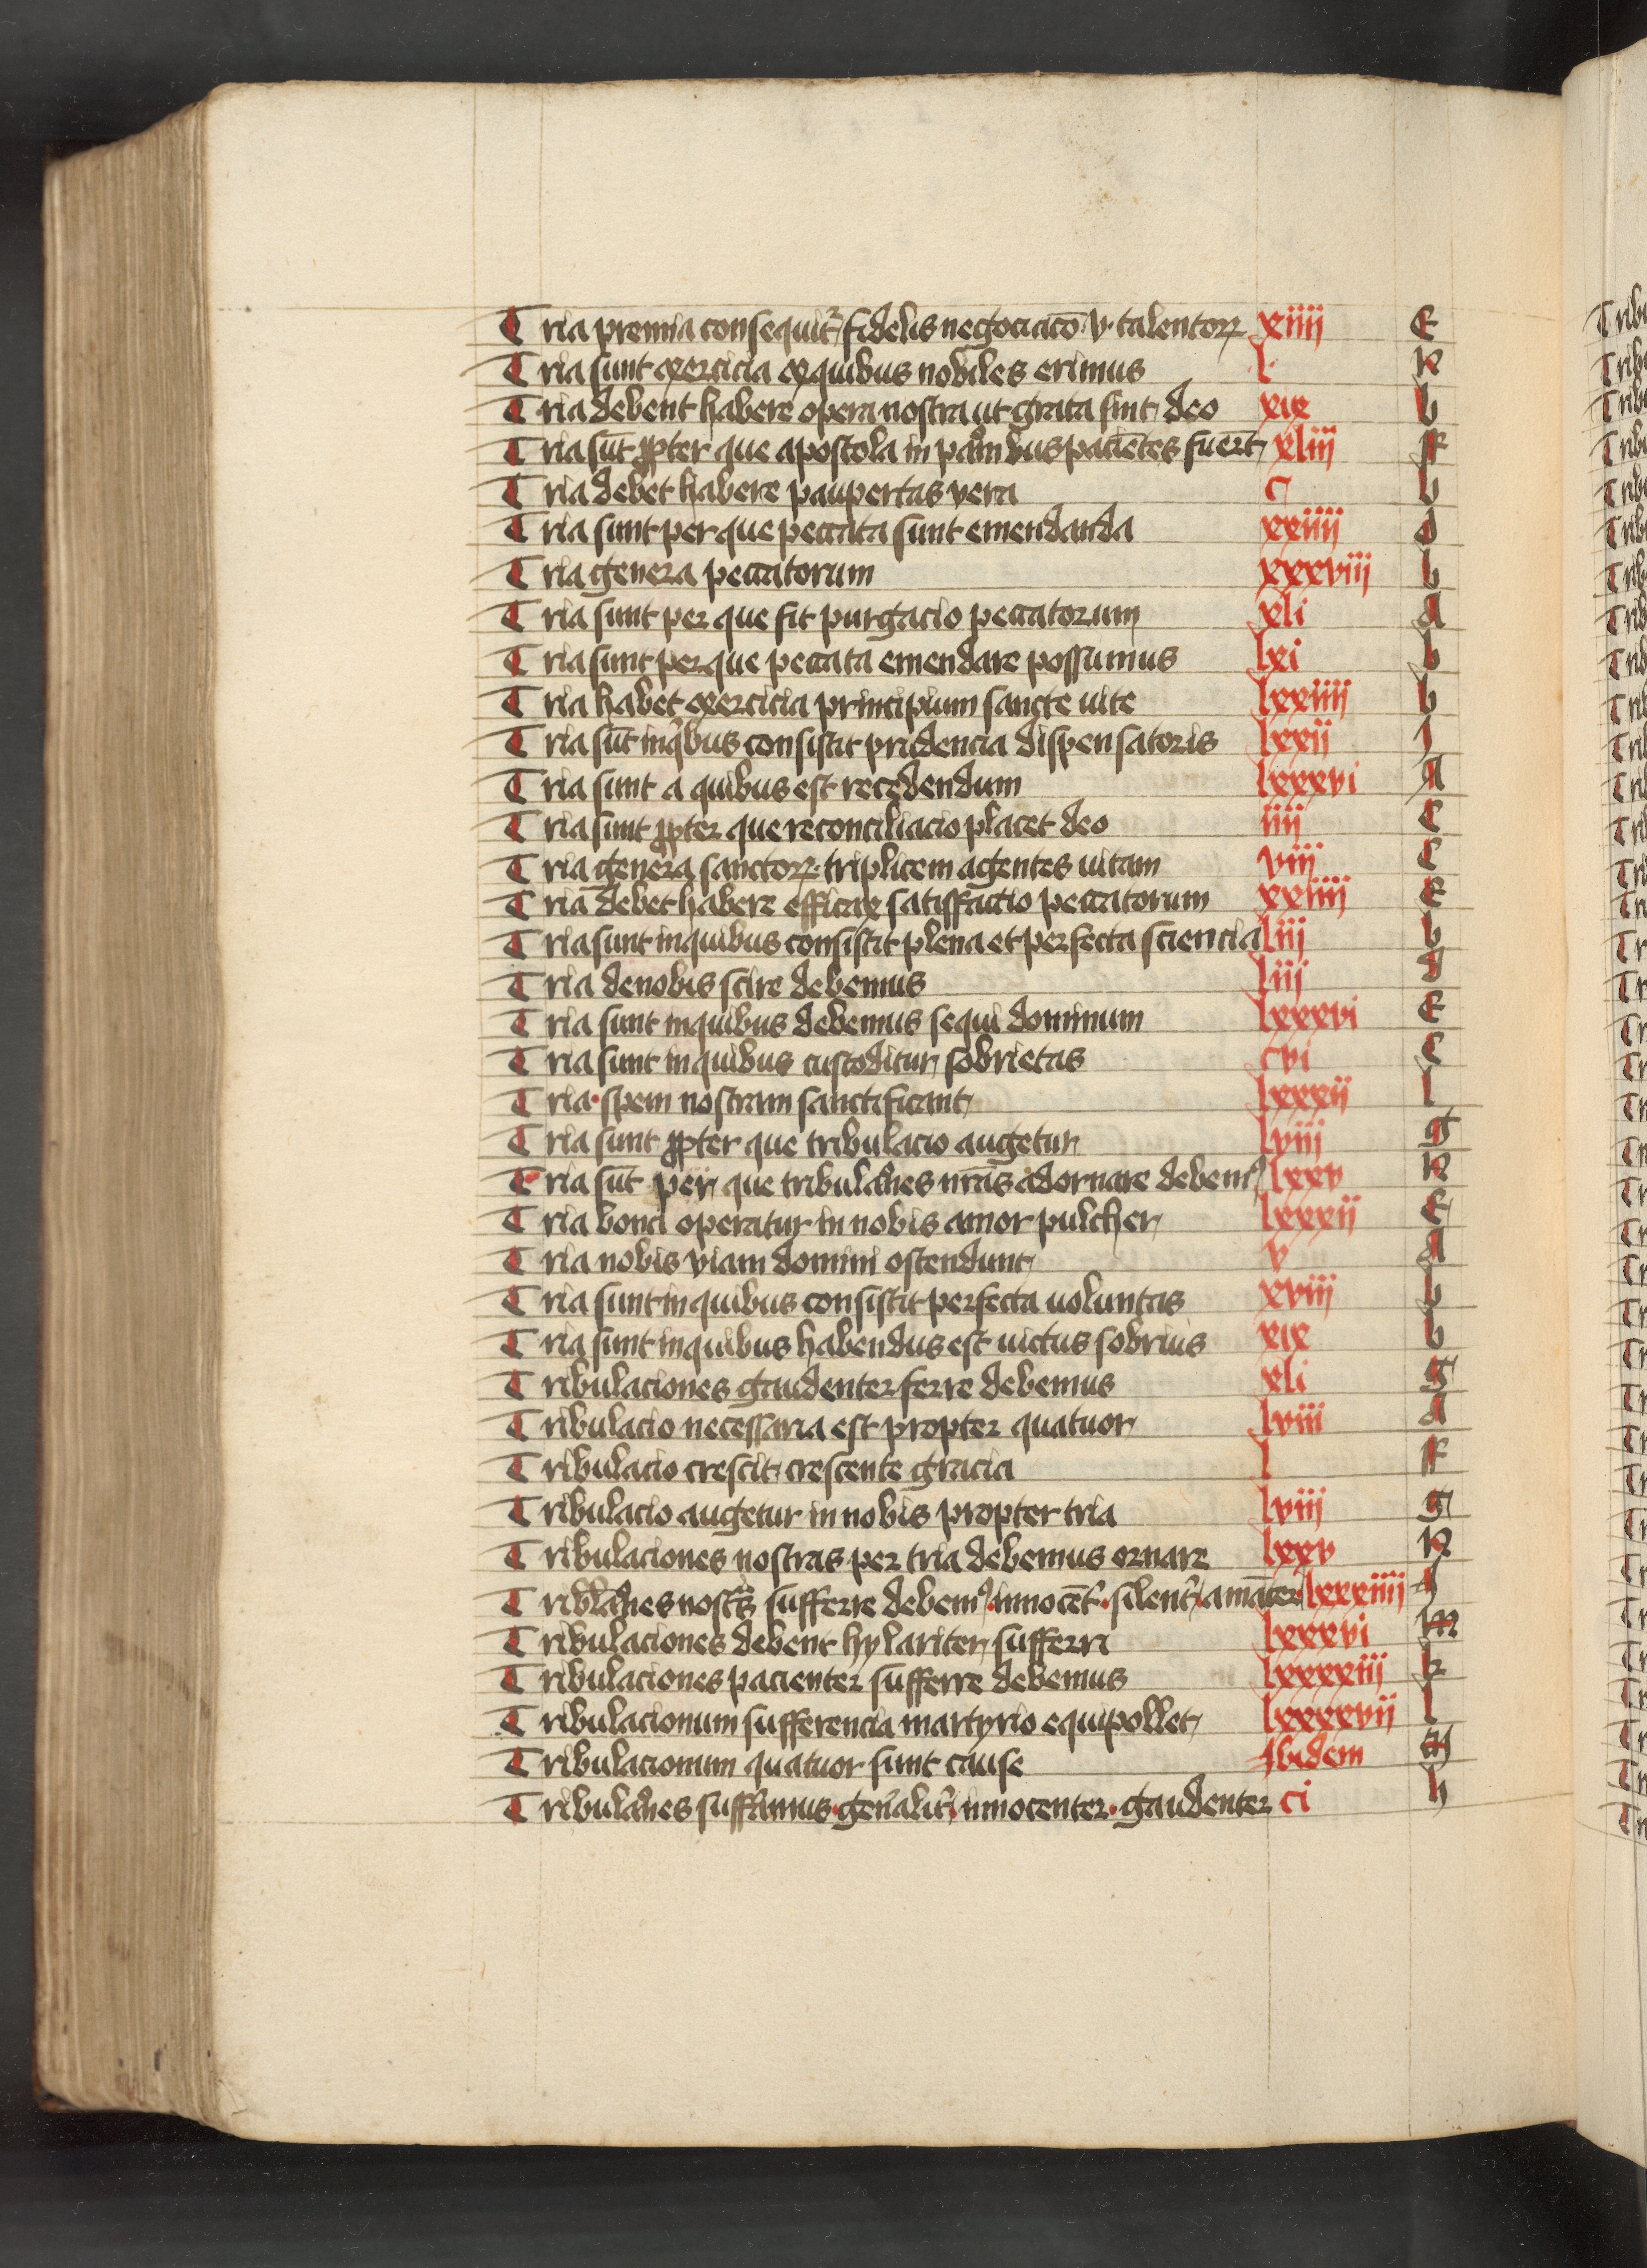 Tria premia consequit᷑ fidelis negociacō v· talentoꝝ xiiii E
Tria sunt exercicia ex quibus nobiles erimus l· K
Tria debent habere opera nostra ut grata sint deo xix b
Tria sūt ꝓpter que apostola in paciētes fuer̄t xliij F
Tria debet habere paupertas vera c b
Tria sunt per que peccata sunt emendanda xxiiij d
Tria genera peccatorum xxxviij b
Tria sunt per que fit purgacio peccatorum xli a
Tria sunt per que peccata emendare possumus lxi b
Tria habet exercicia principium sancte uite lxxiiij b
Tria sūt in qͥbus consistit prudencia dispensatoris lxxij I
Tria sunt a quibus est recedendum lxxxvi A
Tria sunt ꝓpter que reconciliacio placet deo iiij C
Tria genera sanctoꝝ· triplicem agentes uitam viij C
Tria debet habere efficax satisfactio peccatorum xxiiij E
Tria sunt in quibus consistit plena et perfecta sciencia liij b
Tria de nobis scire debemus liij
Tria sunt in quibus debemus sequi dominum lxxxvi E
Tria sunt in quibus custoditur sobrietas cvi C
Tria· spem nostram sanctificant lxxxij l
Tria sunt ꝓpter que tribulacio augetur lviij g
Tria sūt per que tribulac̄nes nr̄as adornare debemꝰ lxxv K
Tria bona operatur in nobis amor pulcher lxxxij E
Tria nobis viam domini ostendunt v A
Tria sunt in quibus consistit perfecta uoluntas xviij b
Tria sunt in quibus habendus est uictus sobrius xix b
Tribulaciones gaudenter ferre debemus xli g
Tribulacio necessaria est propter quatuor lviii A
Tribulacio crescit crescente gracia l F
Tribulacio augetur in nobis propter tria lviij g
Tribulaciones nostras per tria debemus ornare lxxv K
Tribl̄ac̄nes nostᷓs sufferre debemꝰ· innocēt᷑· silent᷑· amāter lxxxiiij
Tribulaciones debent hylariter sufferri lxxxvi m
Tribulaciones pacienter sufferre debemus lxxxxiij k
Tribulacionum sufferencia martyrio equipollet lxxxxvij l
Tribulacionum quatuor sunt cause Ibidem m
Tribulac̄nes sufferamus· gen̄alit᷑· innocenter· gaudenter ci h